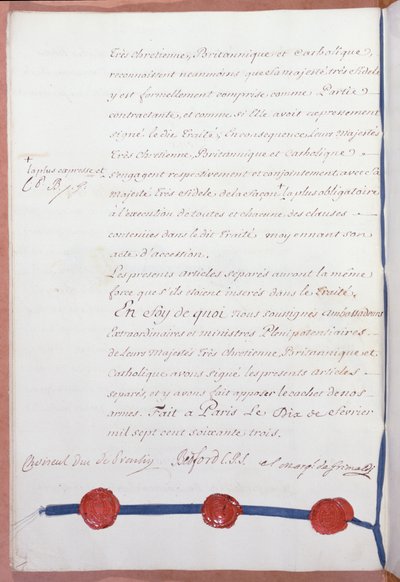 Très Chrétienne, Britannique, et Catholique,
reconnoissent neanmoins que Sa majesté très fidele
y est formellement comprise comme Partie
contractante, et comme si Elle avoit expressement
signé le dit Traité; En consequence, Leurs Majestés
Très Chretienne, Britannique et Catholique
s'engagent respectivement et conjointement, avec Sa
majesté Très Fidele, de la façon + la plus obligatoire
+ la plus expresse et
à l'execution de toutes et chacune des clauses
contenües dans le dit Traité, moyennant son
acte d'accession.
Les presents articles separés auront la même
force que s'ils étoient inserés dans le Traité.
En Foy de quoi nous soussignés Ambassadeurs
Extraordinaires et ministres Plenipotentiaires
de Leurs Majestés Très Chretienne, Britannique et
Catholique avons signé les presents articles
separés, et y avons fait apposer le cachet de nos
armes. Fait a Paris Le Dix de Fevrier
mil sept cent soixante trois.
Choiseul Duc de Praslin Bedford C.P.S. el marq.s de Grimaldi